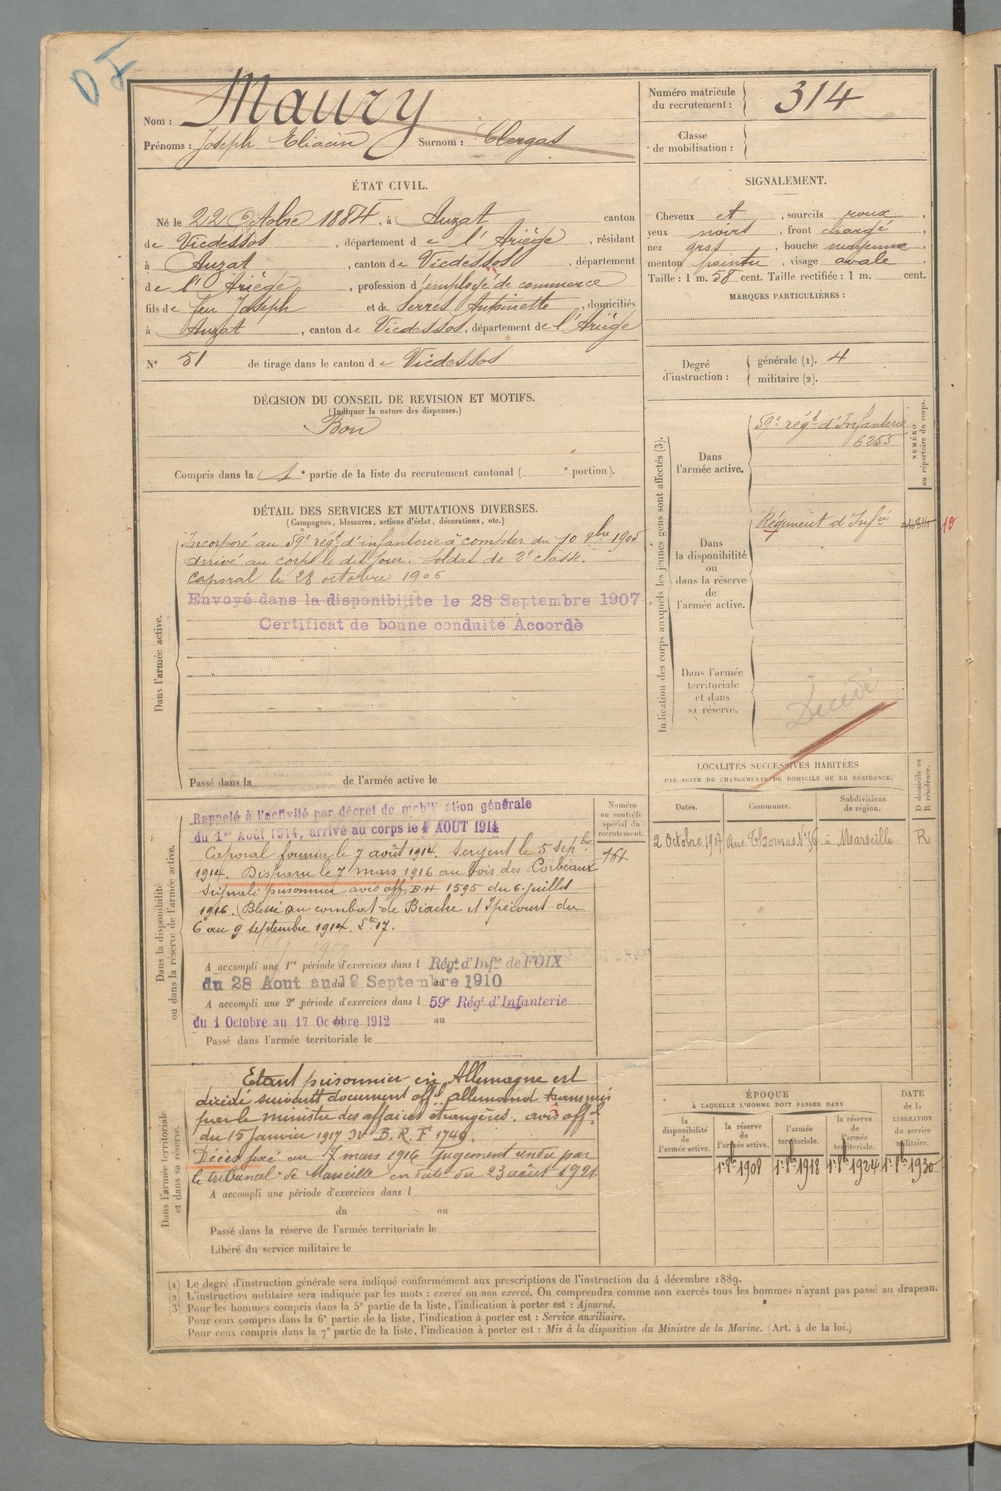 DF
Nom : Maury
Prénoms : Joseph Eliacin Surnom : Clergas
Numéro matricule
du recrutement : 314
Classe
de mobilisation :
ÉTAT CIVIL.
Né le 22 Octobre 1884, à Auzat canton
de Vicdessos, département de l'Ariège, résidant
à Auzat, canton de Vicdessos, département
de l'Ariège, profession d'employé de commerce
fils de feu Joseph et de Serres Antoinette, domiciliés
à Auzat, canton de Vicdessos, département de l'Ariège
N° 51 de tirage dans le canton de Vicdessos
SIGNALEMENT.
Cheveux et, sourcils roux,
yeux noirs, front chargé,
nez gros, bouche moyenne,
menton pointu, visage ovale
Taille : 1 m. 58 cent. Taille rectifiée : 1 m. cent.
MARQUES PARTICULIÈRES :
Degré
d'instruction :
générale (1). 4
militaire (2).
DÉCISION DU CONSEIL DE REVISION ET MOTIFS.
(Indiquer la nature des dispenses.)
Bon
Compris dans la 1e partie de la liste du recrutement cantonal ( e portion).
DÉTAIL DES SERVICES ET MUTATIONS DIVERSES.
(Campagnes, blessures, actions d'éclat, décorations, etc.)
Dans l'armée active.
Incorporé au 59e régt d'infanterie à compter du 10 8bre 1905
arrivé au corps le dit jour. soldat de 2e classe.
Caporal le 28 octobre 1906
Envoyé dans la disponibilite le 28 Septembre 1907.
Certificat de bonne conduite Accordé
Passé dans la de l'armée active le
Indication des corps auxquels les jeunes gens sont affectés (3).
NUMÉRO
au répertoire du corps.
Dans
l'armée active.
59e régt d'Infanterie
6253
Dans
la disponibilité
ou
dans la réserve
de
l'armée active.
Régiment d'Infie
Dans l'armée
territoriale
et dans
sa réserve.
Décédé
Dans la disponibilité
ou dans la réserve de l'armée active.
Numéro
au contrôle
spécial du
recrutement.
161
Rappelé à l'activité par décret de mobilisation générale
du 1er Août 1914, arrivé au corps le 4 AOUT 1914
Caporal fourrier le 7 août 1914. Sergent le 5 Sepbre
1914. Disparu le 7 mars 1916 au bois des Corbeaux
Signalé prisonnier avis off. BH 1595 du 6 juillet
1916. Blessé au combat de Biache et Ipécourt du
6 au 9 septembre 1914.
A accompli une 1re période d'exercices dans l Régt d'Infie de FOIX
du 28 Aout au 9 Septembre 1910
A accompli une 2e période d'exercices dans l 59e Régt d'Infanterie
du 1 Octobre au 17 Octobre 1912 au
Passé dans l'armée territoriale le
LOCALITÉS SUCCESSIVES HABITÉES
PAR SUITE DE CHANGEMENTS DE DOMICILE OU DE RÉSIDENCE.
D domicile ou
R résidence.
Dates. Communes. Subdivisions
de région.
2 Octobre 1907 Rue Thomas N° 76 à Marseille R
Dans l'armée territoriale
et dans sa réserve.
Etant prisonnier en Allemagne est
décédé suivant document offl allemand transmis
par le ministre des affaires étrangères. avis offl
du 15 janvier 1917 B.R.F 1749.
Décès fixé au 7 mars 1916 Jugement rendu par
le tribunal de Marseille en date du 23 août 1921
A accompli une période d'exercices dans l
du au
Passé dans la réserve de l'armée territoriale le
Libéré du service militaire le
ÉPOQUE
À LAQUELLE L'HOMME DOIT PASSER DANS
la
disponibilité
de
l'armée active.
la réserve
de
l'armée active.
l'armée
territoriale.
la réserve
de
l'armée
territoriale.
DATE
de la
LIBÉRATION
du service
militaire.
1er 8bre 1908 1er 8bre 1918 1er 8bre 1924 1er 8bre 1930
(1) Le degré d'instruction générale sera indiqué conformément aux prescriptions de l'instruction du 4 décembre 1889.
(2) L'instruction militaire sera indiquée par les mots : exercé ou non exercé. On comprendra comme non exercés tous les hommes n'ayant pas passé au drapeau.
(3) Pour les hommes compris dans la 5e partie de la liste, l'indication à porter est : Ajourné.
Pour ceux compris dans la 6e partie de la liste, l'indication à porter est : Service auxiliaire.
Pour ceux compris dans la 7e partie de la liste, l'indication à porter est : Mis à la disposition du Ministre de la Marine. (Art. 4 de la loi.)